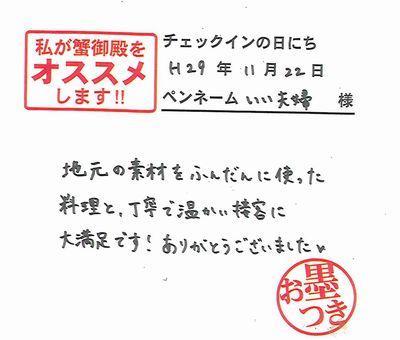 私が蟹御殿を
オススメ
します!!
チェックインの日にち
H29年11月22日
ペンネーム いい夫婦 様
地元の素材をふんだんに使った
料理と、丁寧で温かい接客に
大満足です!ありがとうございました
お墨つき